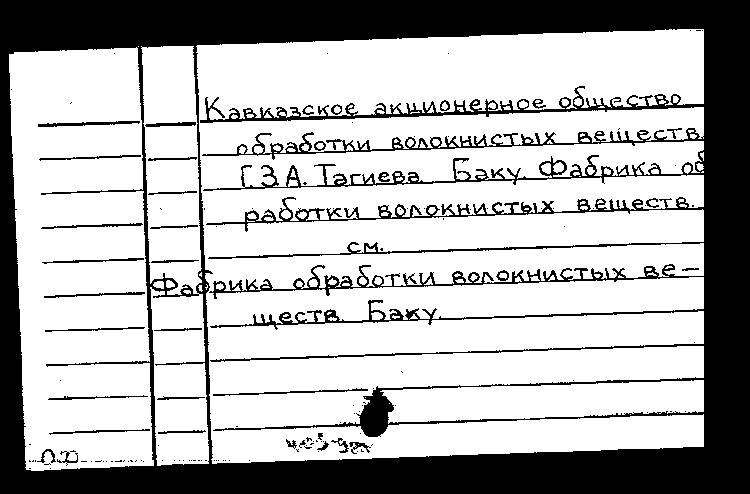 Кавказское акционерное общество
обработки волокнистых веществ.
Г.З.А. Тагиева. Баку. Фабрика об
работки волокнистых веществ.
см.
Фабрика обработки волокнистых ве-
ществ. Баку.